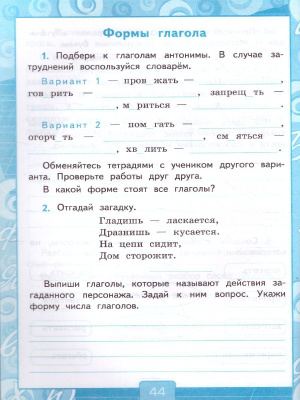 Формы глагола
1. Подбери к глаголам антонимы. В случае за-
труднений воспользуйся словарём.
Вариант 1 — пров жать —
гов рить — , запрещ ть —
, м риться — .
Вариант 2 — пом гать — ,
огорч ть — , см яться —
, хв лить — .
Обменяйтесь тетрадями с учеником другого вари-
анта. Проверьте работы друг друга.
В какой форме стоят все глаголы?
2. Отгадай загадку.
Гладишь — ласкается,
Дразнишь — кусается.
На цепи сидит,
Дом сторожит.
Выпиши глаголы, которые называют действия за-
гаданного персонажа. Задай к ним вопрос. Укажи
форму числа глаголов.
44